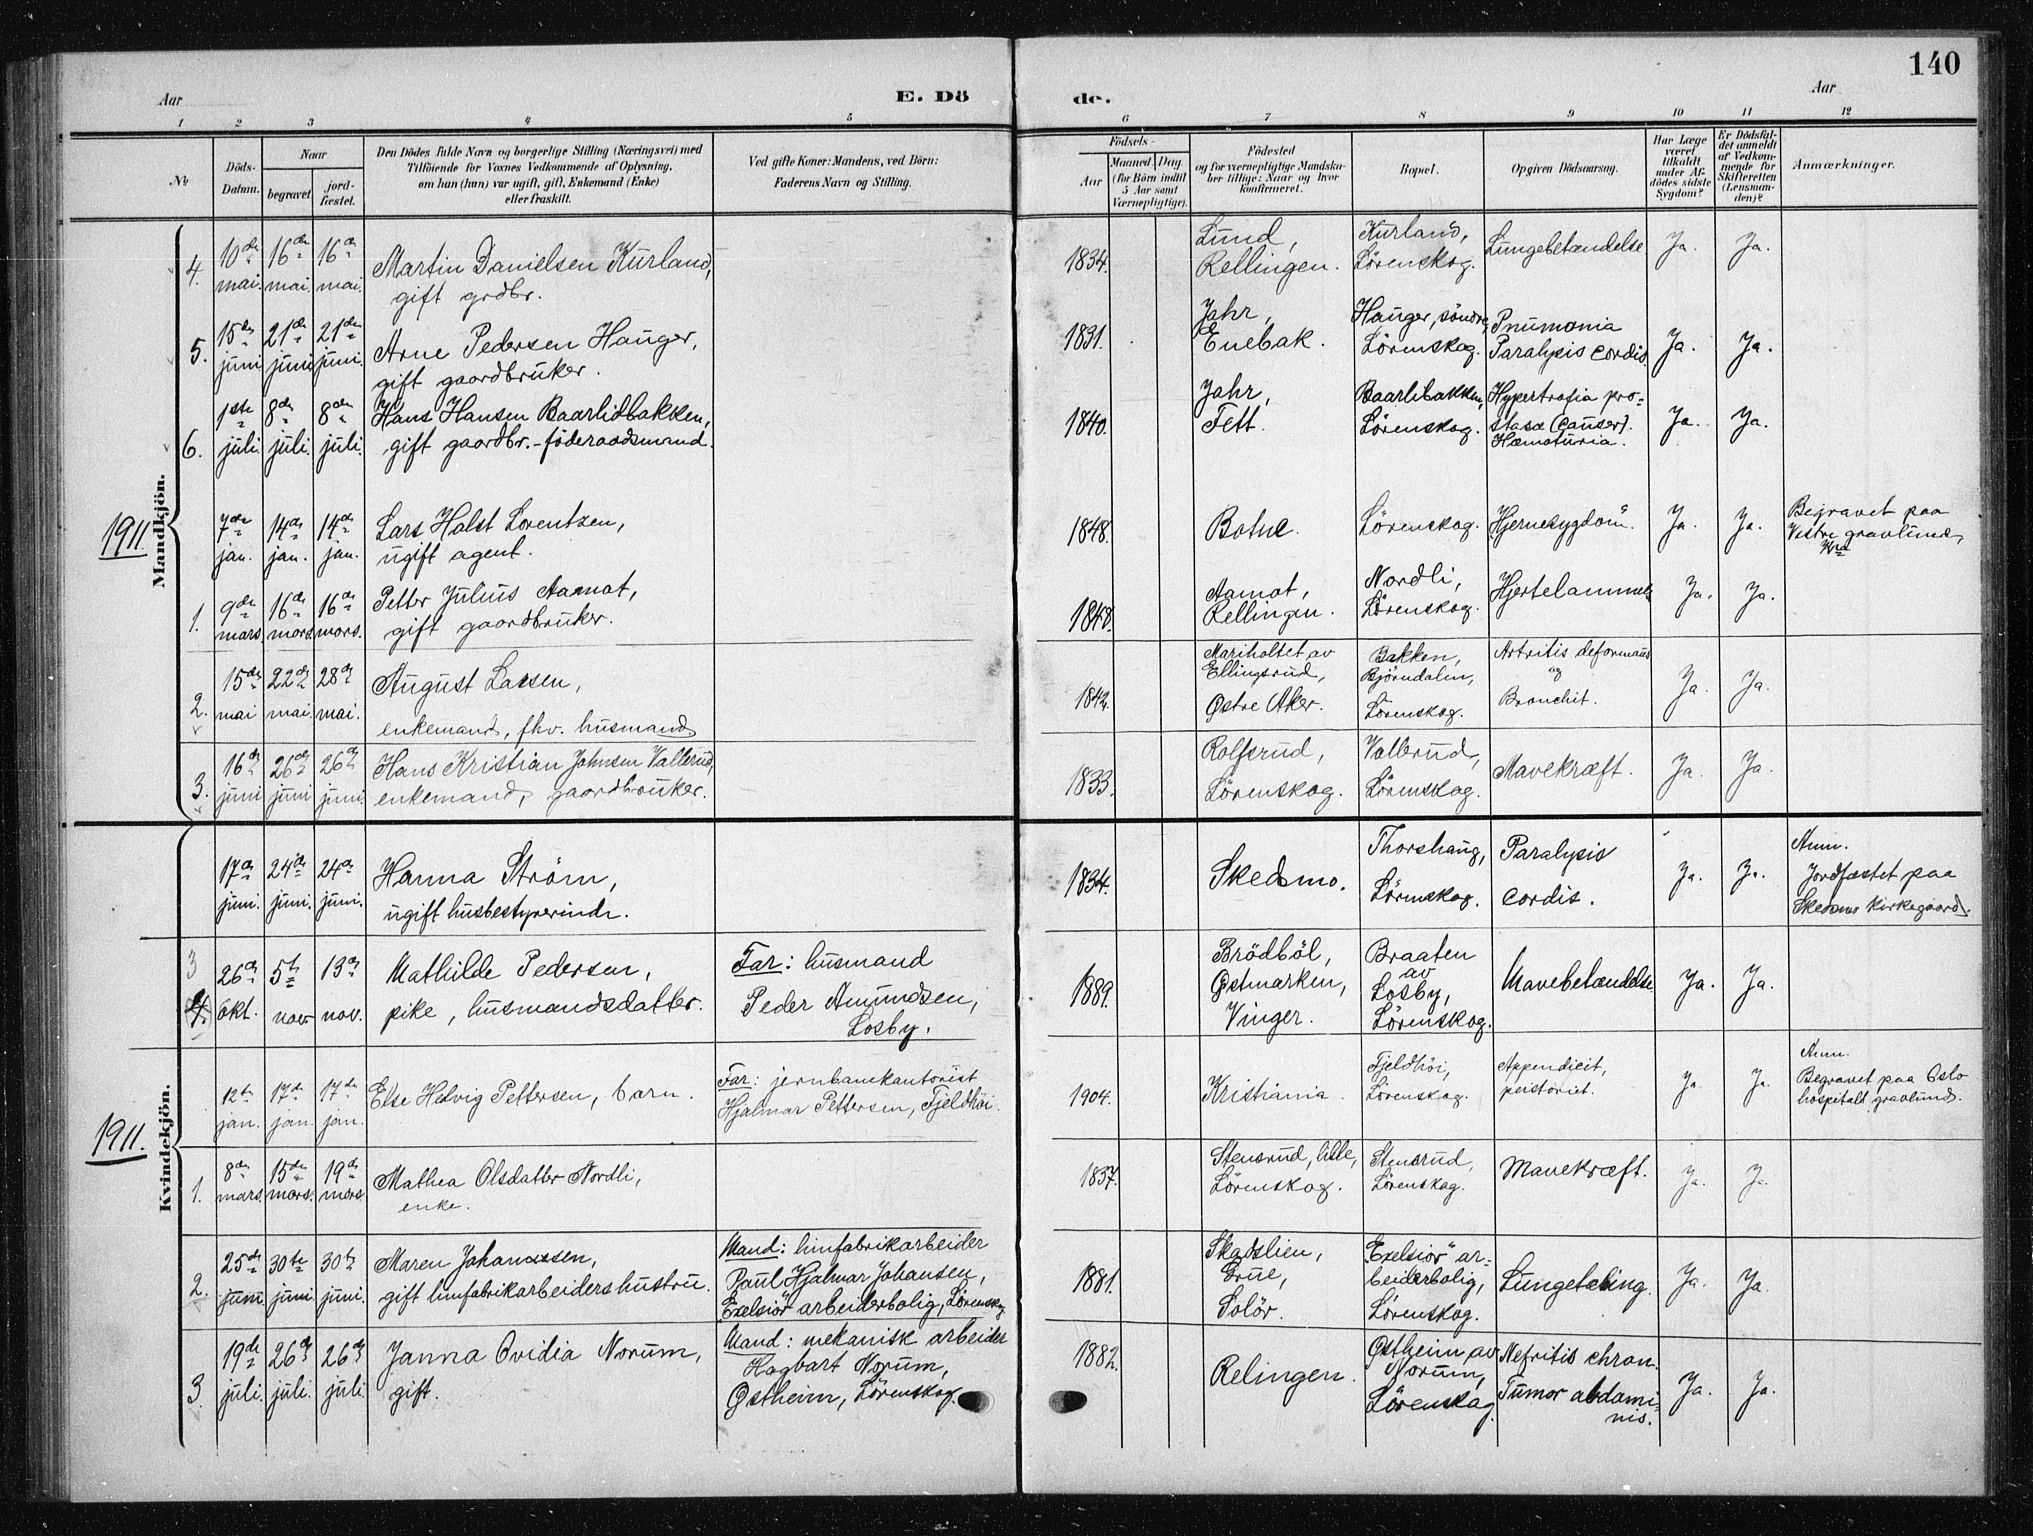 140
Aar
E. Dö
de.
Aar
1 2 3 4 5 6 7 8 9 10 11 12
Nr
Döds-
Datum.
Naar
begravet.
jord-
fæstet.
Den Dödes fulde Navn og borgerlige Stilling (Næringsvei) med
Tilföiende for Voxnes Vedkommende af Oplysning,
om han (hun) var ugift, gift, Enkemand (Enke)
eller fraskilt.
Ved gifte Koner: Mandens, ved Börn:
Faderens Navn og Stilling.
Födsels-
Aar
Maaned. Dag.
(for Börn indtil
5 Aar samt
Værnepligtige).
Födested
og for værnepligtige Mandska-
ber tillige: Naar og hvor
konfirmeret.
Bopæl.
Opgiven Dödsaarsag.
Har Læge
været
tilkaldt
under Af-
dödes sidste
Sygdom?
Er Dödsfal-
det anmeldt
af Vedkom-
mende for
Skifteretten
(Lensman-
den)?
Anmærkninger.
Mandkjön.
4. 10de mai. 16de mai. 16de mai. Martin Danielsen Kurland,
gift grdbr.
1834. Lund,
Rellingen.
Kurland,
Lörenskog.
Lungebetændelse Ja. Ja.
5. 15de juni 21de juni 21de juni. Arne Pedersen Hauger,
gift gaardbruker.
1831. Jahr,
Enebak.
Hauger, söndre,
Lörenskog.
Pnumonia
Paralysis cordis. Ja. Ja.
6. 1ste juli. 8de juli. 8de juli. Hans Hansen Baarlidbakken,
gift gaardbr.-föderaadsmand.
1840. Jahr,
Fett.
Baarlibakken,
Lörenskog.
Hypertrofia pro-
stasæ (Causer).
Hæmaturia. Ja. Ja.
1911.
7de jan. 14de jan. 14de jan. Lars Holst Lorentzen,
ugift agent.
1848. Botne. Lörenskog. "Hjernesygdom". Ja. Ja.
Begravet paa
Vestre gravlund,
Kra
1. 9de mars. 16de mars. 16de mars. Petter Julius Aamot,
gift gaardbruker.
1848. Aamot,
Rellingen.
Nordli,
Lörenskog.
Hjertelammelse Ja. Ja.
2. 15de mai 22de mai. 28de mai. August Larsen,
enkemand, fhv. husmand
1842. Mariholtet av
Ellingsrud,
Østre Aker.
Bakken,
Björndalen,
Lörenskog.
Artritis deformans
og
Bronchit. Ja. Ja.
3. 16de juni 26de juni 26de juni. Hans Kristian Johnsen Vallerud,
enkemand, gaardbruker.
1833. Rolfsrud,
Lörenskog.
Vallerud,
Lörenskog.
Mavekræft. Ja. Ja.
Kvindekjön.
17de juni. 24de juni. 24de juni. Hanna Ström,
ugift husbestyrerinde.
1834. Skedsmo.
Thorshaug,
Lörenskog.
Paralysis
cordis. Ja. Ja.
Anm.
Jordfæstet paa
Skedsmo kirkegaard.
3
4. 26de okt. 5te nov. 13de nov. Mathilde Pedersen,
pike, husmandsdatter.
Far: husmand
Peder Amundsen,
Losby.
1889. Brödböl,
Østmarken,
Vinger.
Braaten
av
Losby,
Lörenskog.
Mavebetændelse Ja. Ja.
1911.
12te jan. 17de jan. 17de jan. Else Hedvig Pettersen, barn.
Far: jernbanekontorist
Hjalmar Pettersen, Fjeldhöi.
1904. Kristiania.
Fjeldhöi,
Lörenskog.
Appendicit,
peritoriet. Ja. Ja.
Anm.
Begravet paa Oslo
hospitalt gravlund.
1. 8de mars. 15de mars. 19de mars Mathea Olsdatter Nordli,
enke.
1837. Stensrud, lille,
Lörenskog.
Stensrud,
Lörenskog.
Mavekræft. Ja. Ja.
2. 25de juni 30te juni 30te juni. Maren Johanssen,
gift limfabrikarbeiders hustru.
Mand: limfabrikarbeider
Paul Hjalmar Johansen,
Exelsior arbeiderbolig, Lörenskog
1881. Skadslien,
Grue,
Solör.
"Exelsior" ar-
beiderbolig,
Lörenskog.
Lungetæring. Ja. Ja.
3. 19de juli. 26de juli. 26de juli Janna Ovidia Norum,
gift.
Mand: mekanisk arbeider
Hagbart Norum,
Østheim, Lörenskog.
1882. Relingen.
Østheim av
Norum,
Lörenskog.
Nefritis chron.
Tumor abdomi-
nis. Ja. Ja.